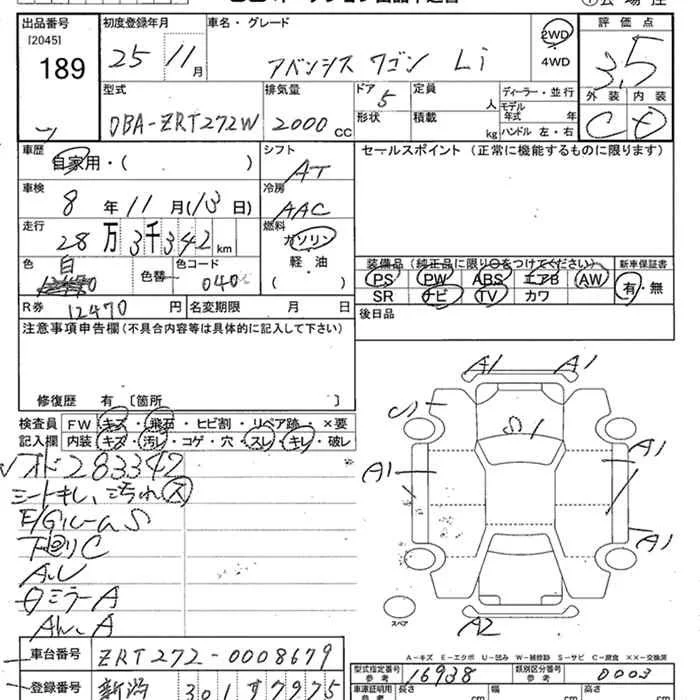 出品番号 [2045] 189
初度登録年月 25 11 月
車名・グレード アベンシス ワゴン Li
2WD・4WD
評価点 3.5
外装 C 内装
型式 DBA-ZRT272W
排気量 2000 cc
ドア 5 形状
定員 人 積載 kg
ディーラー・並行
モデル年式 年
ハンドル 左・右
車歴 自家用・( )
シフト AT
セールスポイント (正常に機能するものに限ります)
車検 8 年 11 月(13 日)
冷房 AAC
走行 28 万 3 千 342 km
燃料 ガソリン 軽・油 ( )
色 白 色替 色コード 040
装備品 (純正品に限り○をつけてください)
新車保証書 有・無
PS PW ABS エアB AW
SR ナビ TV カワ
R券 12470 円 名変期限 月 日
後日品
注意事項申告欄 (不具合内容等は具体的に記入して下さい)
修復歴 有 〔箇所 〕
検査員 FW キズ・飛石・ヒビ割・リペア跡・×要
記入欄 内装 キズ・汚レ・コゲ・穴・スレ・キレ・破レ
オド283342
シートキレ、汚れ ス
E/Gルーム S
下廻り C
ミラーA
A1 A1
A1 A1
A1
A2
スペア
A-キズ E-エクボ U-凹み W-補修跡 S-サビ C-腐食 ××-交換済
車台番号 ZRT272-0008679
登録番号 新潟 301 す 7975
型式指定番号 参考 16938
類別区分番号 参考 0003
車庫証明用 参考 長さ cm 幅 cm 高さ cm